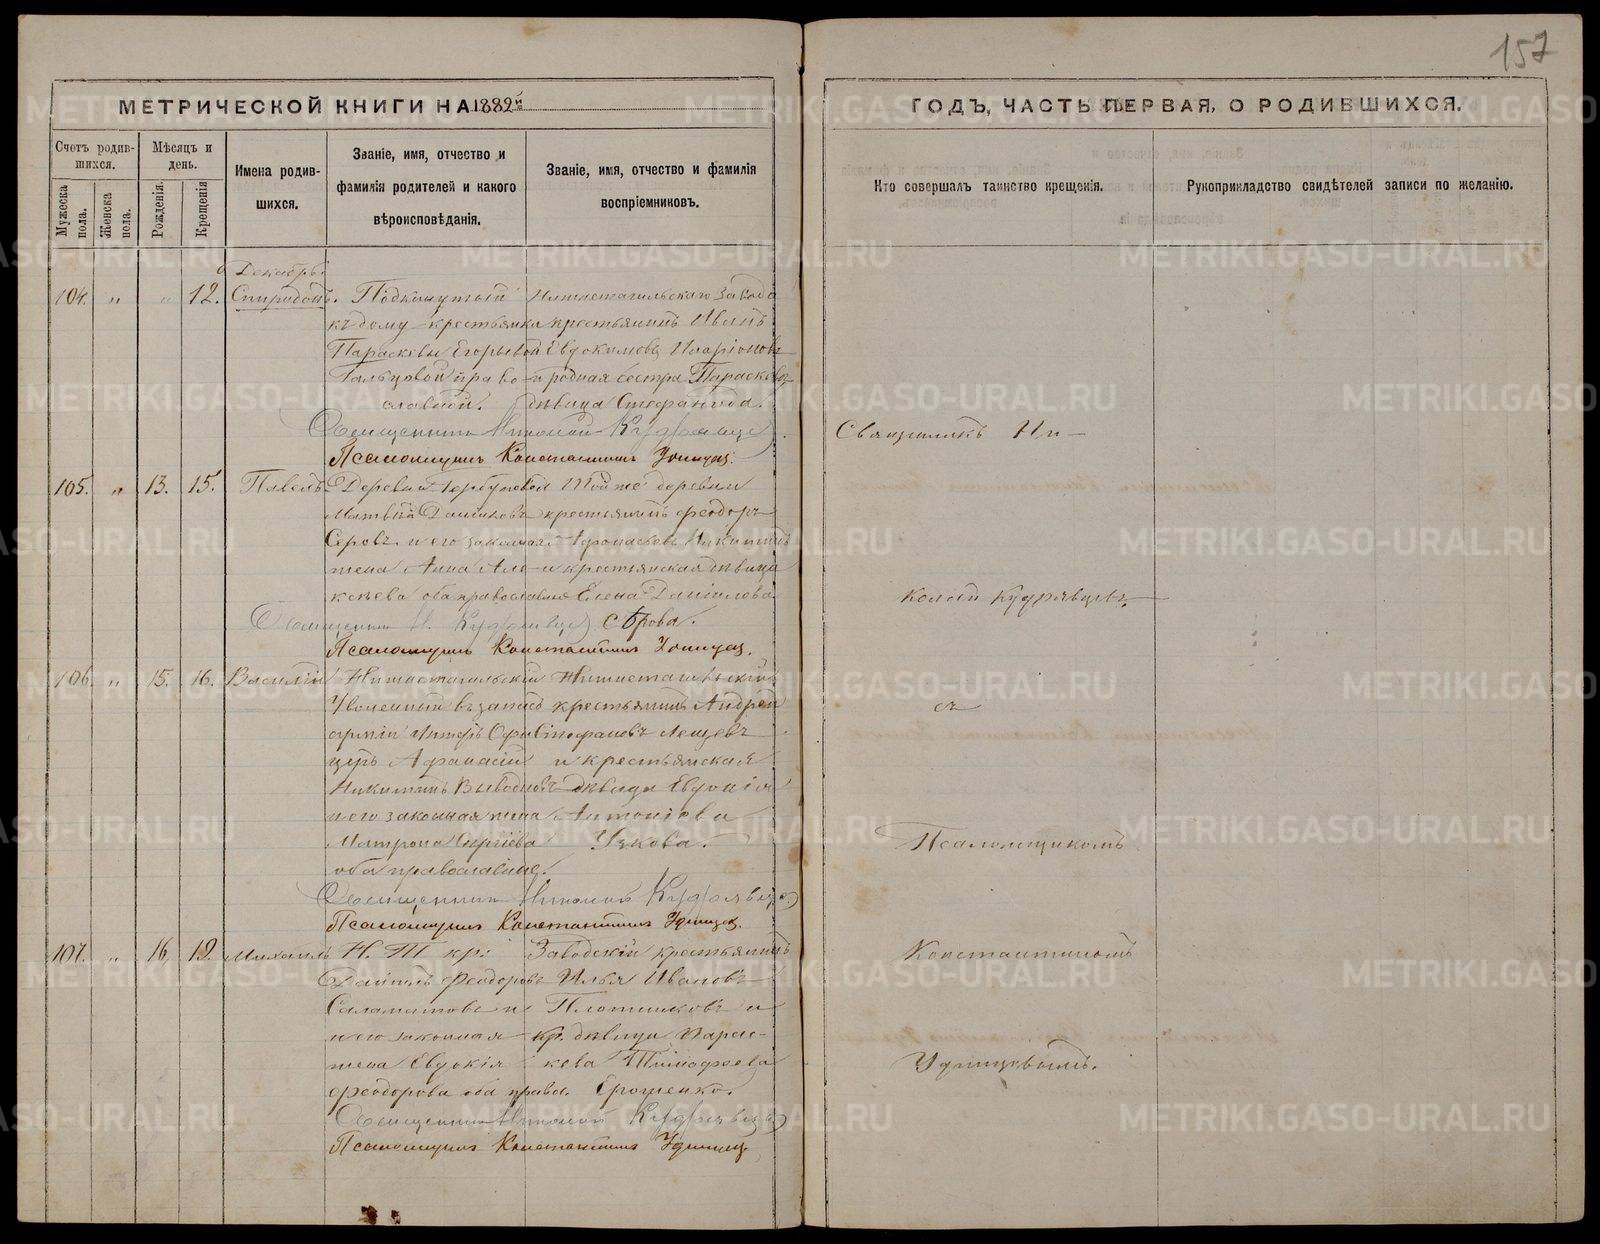 157
МЕТРИЧЕСКОЙ КНИГИ НА 1882й
ГОДЪ, ЧАСТЬ ПЕРВАЯ, О РОДИВШИХСЯ.
Счетъ родив-
шихся.
Мужеска пола.
Женска пола.
Мѣсяцъ и
день.
Рожденія.
Крещенія
Имена родив-
шихся.
Званіе, имя, отчество и
фамилія родителей и какого
вѣроисповѣданія.
Званіе, имя, отчество и фамилія
воспріемниковъ.
Кто совершалъ таинство крещенія.
Рукоприкладство свидѣтелей записи по желанію.
Декабрь.
104. " " 12. Спиридонъ.
Подкинутый
къ дому крестьянки
Параскевы Егорьевой
Гальцовой право-
славной.
Нижнетагильскаго завода
крестьянинъ Иванъ
Евдокимовъ
и родная сестра Параскевы
дѣвица Стефанида.
Священникъ Николай Кудрявцев
Псаломщикъ Константинъ Удинцев.
105. " 13. 15. Павелъ
Деревни
Матвѣй Даниловъ
Серовъ и его законная
жена Анна Але-
ксѣева оба православные
Той же деревни
крестьянинъ Феодоръ
Афонасьевъ Никитинъ
и крестьянская дѣвица
Елена Данилова
Сѣрова.
Священник Н. Кудрявцев
Псаломщикъ Константинъ Удинцев.
106. " 15. 16. Василій
Нижнетагильскій
Уволенный въ запасъ
арміи Унтеръ Офи-
церъ Афанасій
Никитинъ
и его законная жена
Матрона Сергіева
оба православные.
Нижнетагильскій
крестьянинъ Андрей
Стефановъ Лещевъ
и крестьянская
дѣвица Евдокія
Антоніева
Ускова.
Священник Николай Кудрявцев
Псаломщикъ Константинъ Удинцев.
107. " 16. 19. Михаилъ
Н. Т. кр:
Даніилъ Феодоровъ
Саламатовъ и
и его законная
жена Евдокія
Феодорова оба правос.
Заводскій крестьянинъ
Илья Ивановъ
Плотниковъ и
кр. дѣвица Парас-
кева Тимофеева
Ерошенко.
Священник Николай Кудрявцев
Псаломщикъ Константинъ Удинцев
Священникъ Ни-
колай Кудрявцевъ
съ
Псаломщикомъ
Константиномъ
Удинцевымъ.
METRIKI.GASO-URAL.RU